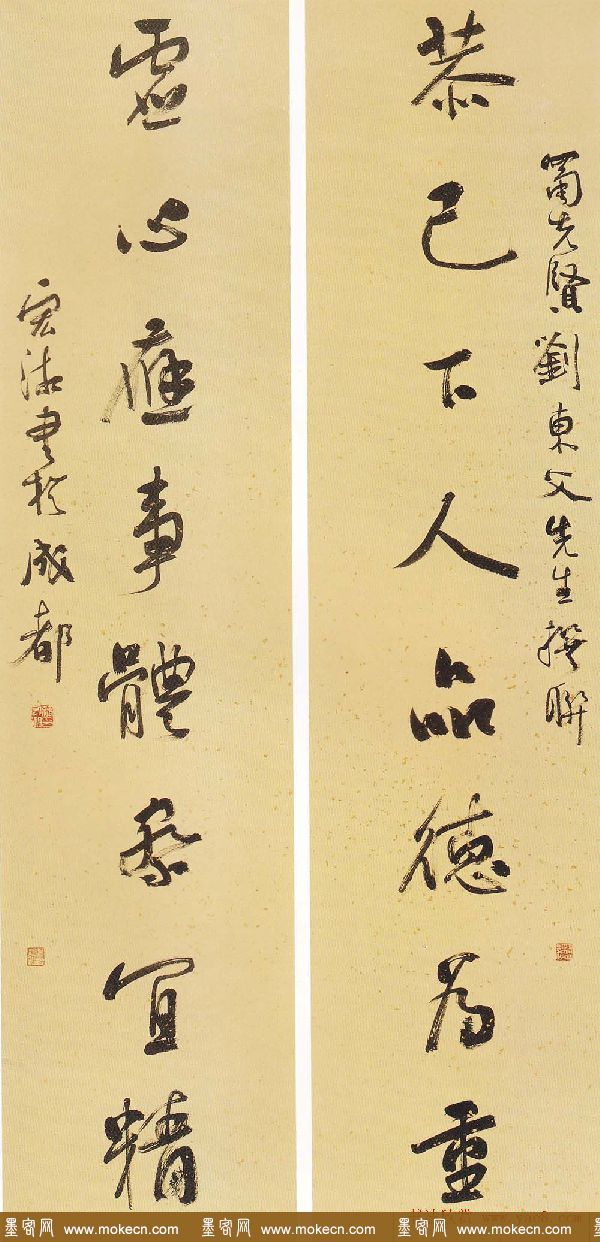 蜀先賢劉東父先生撰聯
恭己下人品德為重
虛心應事體察宜精
書於成都
墨客网 www.mokecn.com 墨客网 www.mokecn.com 墨客网 www.mokecn.com